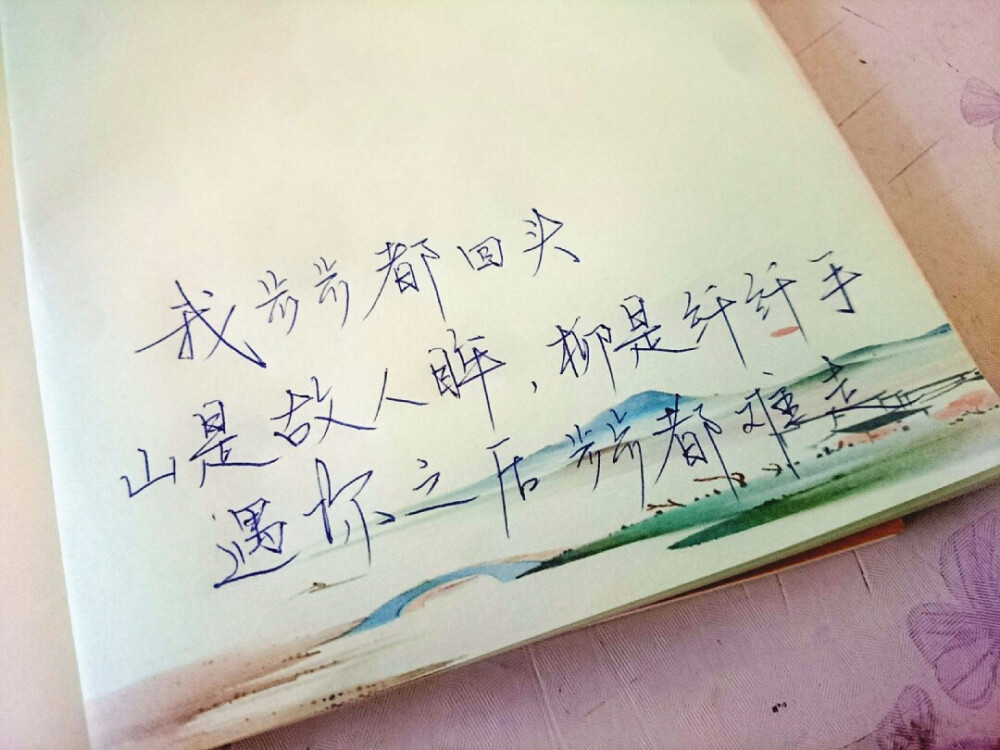 我步步都回头
山是故人眸，柳是纤纤手
遇你之后步步都难走